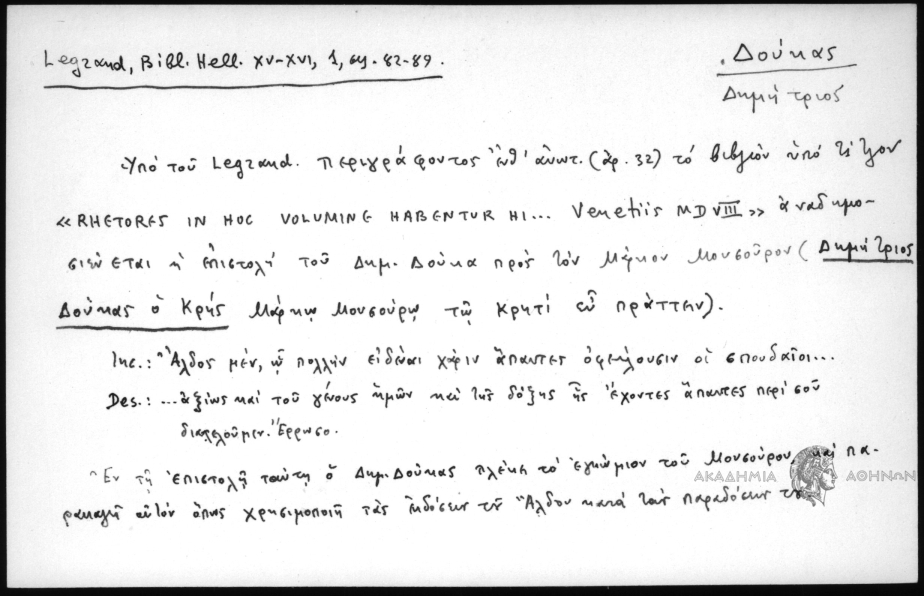 Legrand, Bibl. Hell. XV-XVI, 1, σελ. 82-89.
Δούκας
Δημήτριος
Ὑπό τοῦ Legrand. περιγράφοντος ἐνθ' ἀνωτ. (ἀρ. 32) τό βιβλίον ὑπό τίτλον
«RHETORES IN HOC VOLUMINE HABENTUR HI... Venetiis MDVIII» ἀναδημο-
σιεύεται ἡ ἐπιστολή τοῦ Δημ. Δούκα πρός τόν Μάρκον Μουσοῦρον (Δημήτριος
Δούκας ὁ Κρής Μάρκῳ Μουσούρῳ τῷ Κρητί εὖ πράττειν).
Inc.: Ἄλδος μέν, ᾧ πολλήν εἰδέναι χάριν ἅπαντες ὀφείλουσιν οἱ σπουδαῖοι...
Des.: ...ἀξίως καί τοῦ γένους ἡμῶν καί τῆς δόξης ἧς ἔχοντες ἅπαντες περί σοῦ
διατελοῦμεν. Ἔρρωσο.
Ἐν τῇ ἐπιστολῇ ταύτῃ ὁ Δημ. Δούκας πλέκει τό ἐγκώμιον τοῦ Μουσούρου καί πα-
ρακαλῇ αὐτόν ὅπως χρησιμοποιῇ τάς ἐκδόσεις τοῦ Ἄλδου κατά τάς παραδόσεις του
ΑΚΑΔΗΜΙΑ ΑΘΗΝΩΝ